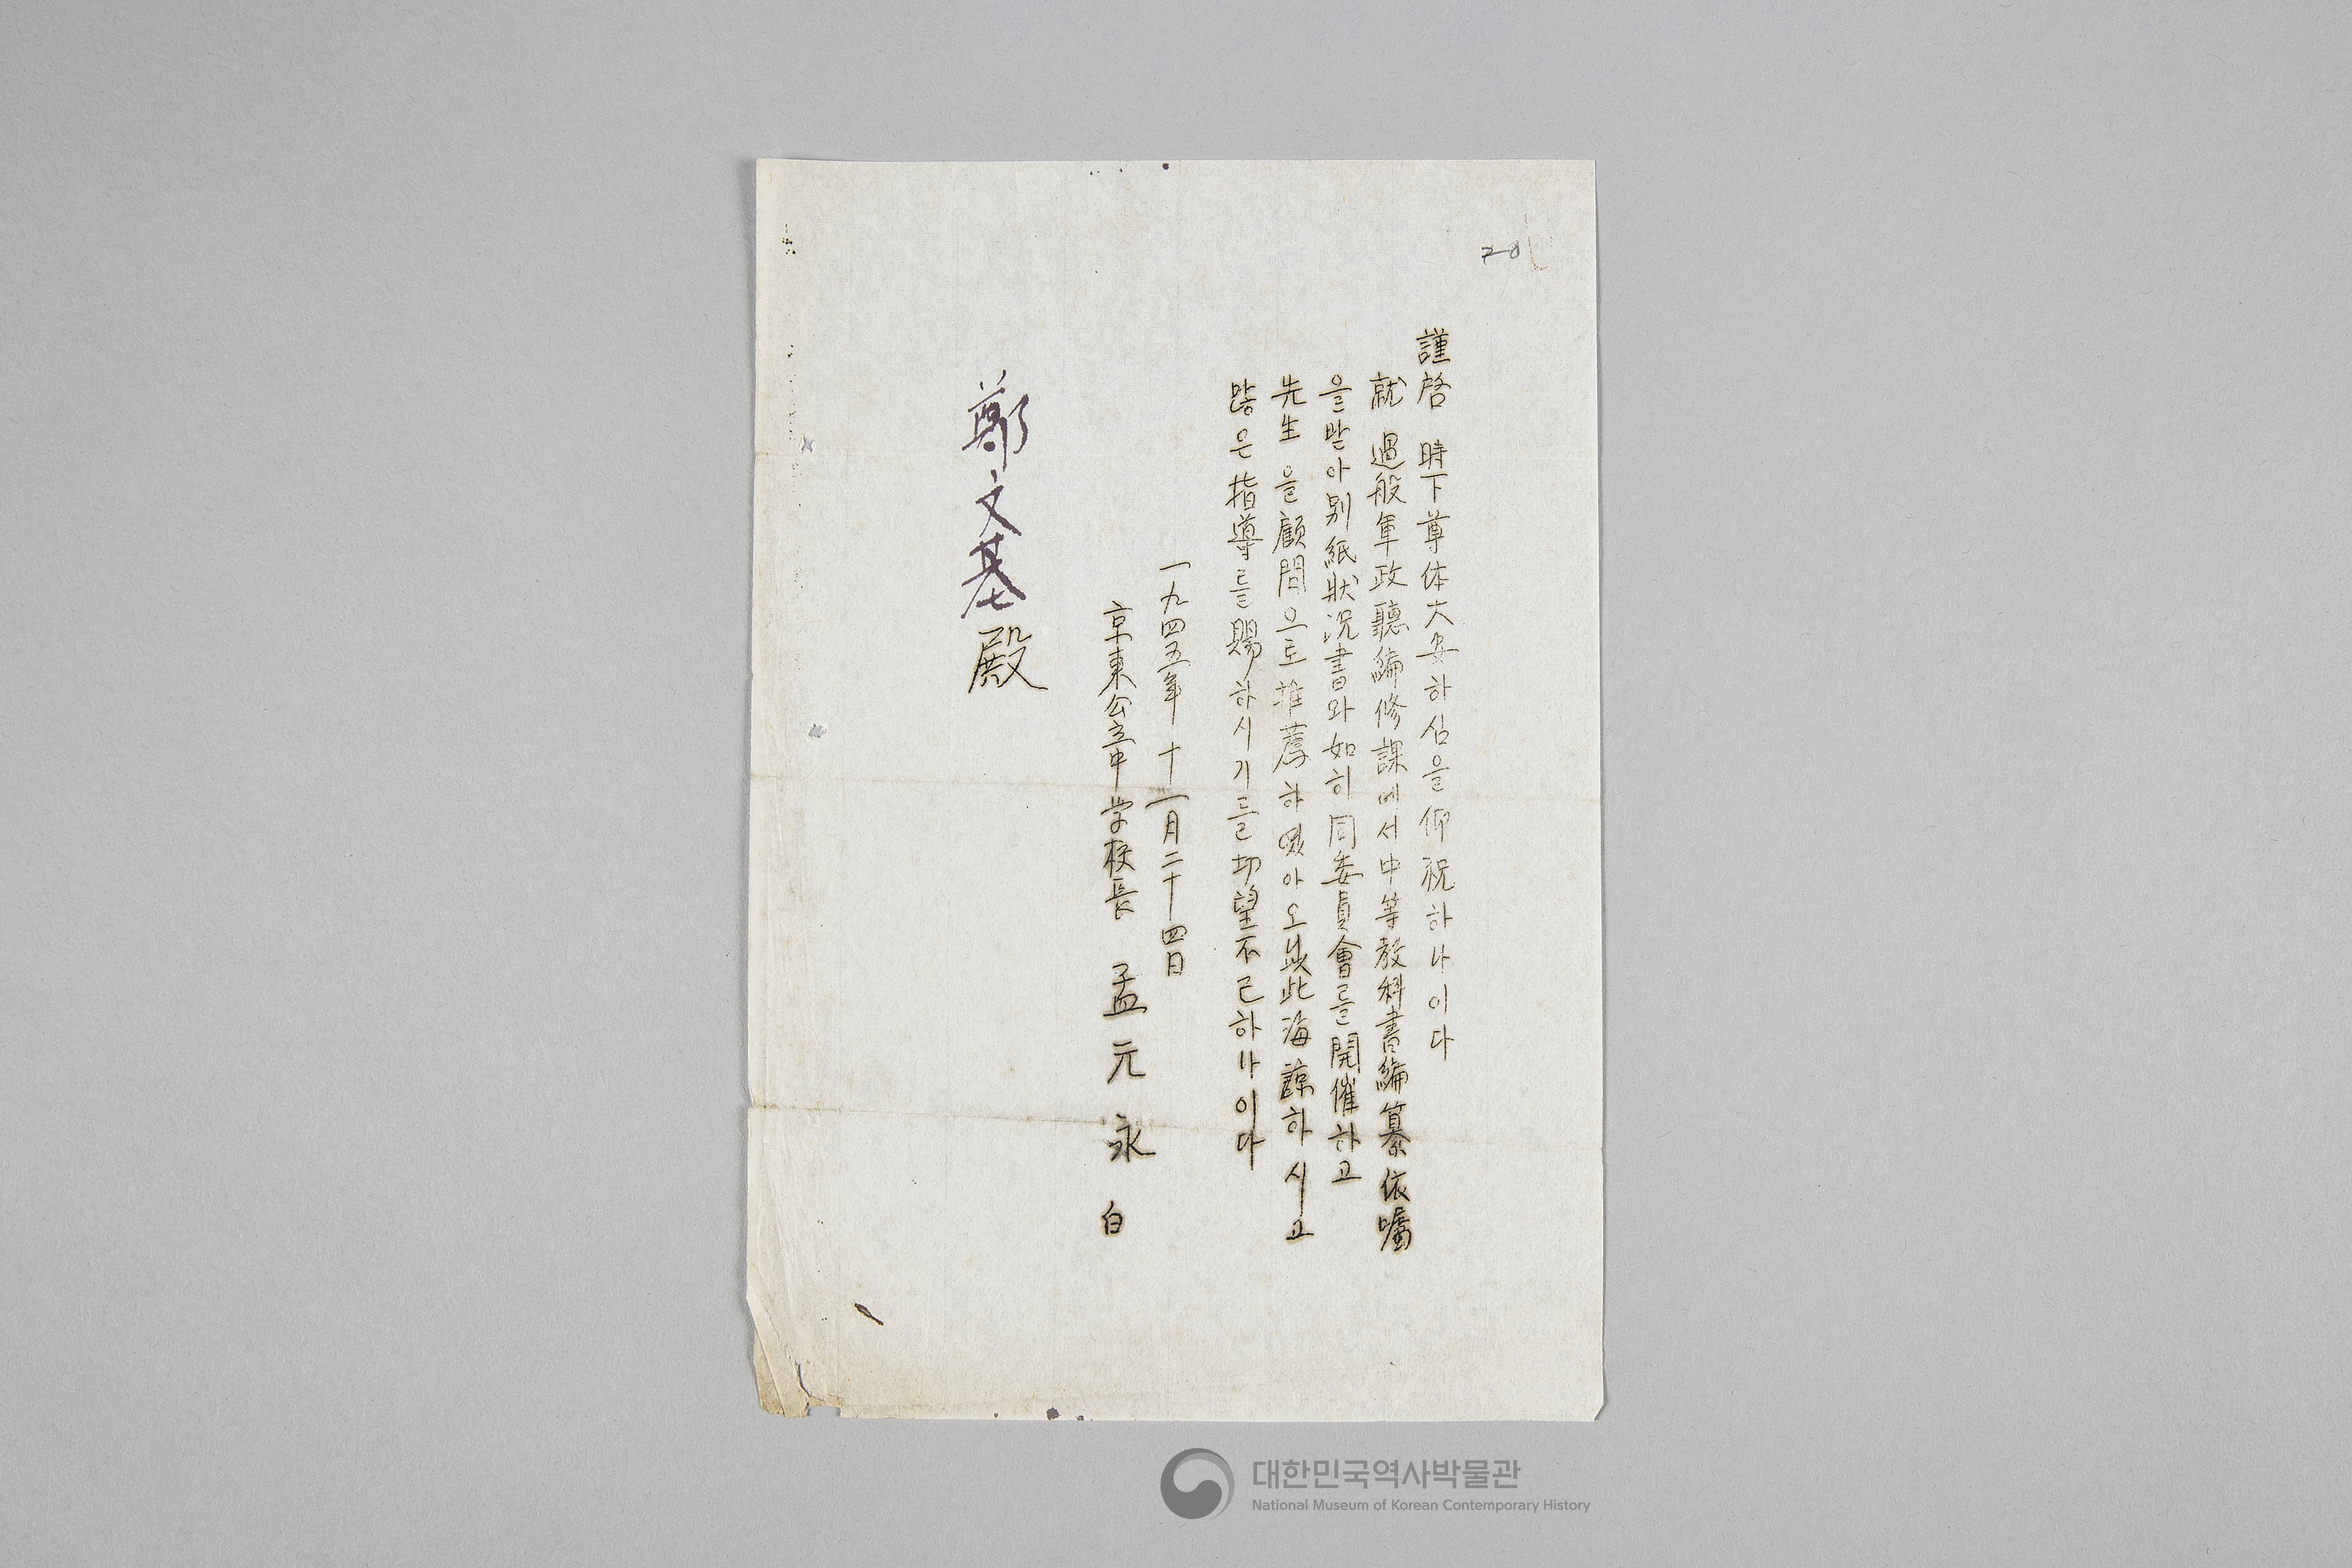 28
謹啓 時下尊体大安하심을仰祝하나이다
就 過般軍政聽編修課에서中等敎科書編纂依囑
을받아別紙狀況書와如히同委員會를開催하고
先生을顧問으로推薦하였아오니此海諒하시고
많은指導를賜하시기를切望不已하나이다
一九四五年 十一月二十四日
京東公立中学校長 孟元永 白
鄭文基殿
대한민국역사박물관
National Museum of Korean Contemporary History